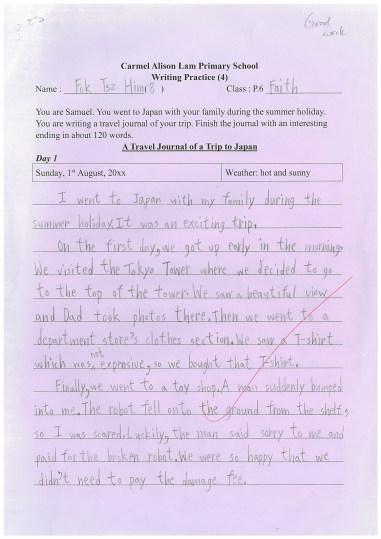 Good
work
Carmel Alison Lam Primary School
Writing Practice (4)
Name : Fok Tsz Him(8) Class : P.6 Faith
You are Samuel. You went to Japan with your family during the summer holiday.
You are writing a travel journal of your trip. Finish the journal with an interesting
ending in about 120 words.
A Travel Journal of a Trip to Japan
Day 1
Sunday, 1st August, 20xx Weather: hot and sunny
I went to Japan with my family during the
summer holiday. It was an exciting trip.
On the first day, we got up early in the morning.
We visited the Tokyo Tower where we decided to go
to the top of the tower. We saw a beautiful view
and Dad took photos there. Then we went to a
department store's clothes section. We saw a T-shirt
which was not expensive, so we bought that T-shirt.
Finally, we went to a toy shop. A man suddenly bumped
into me. The robot fell onto the ground from the shelf,
so I was scared. Luckily, the man said sorry to me and
paid for the broken robot. We were so happy that we
didn't need to pay the damage fee.